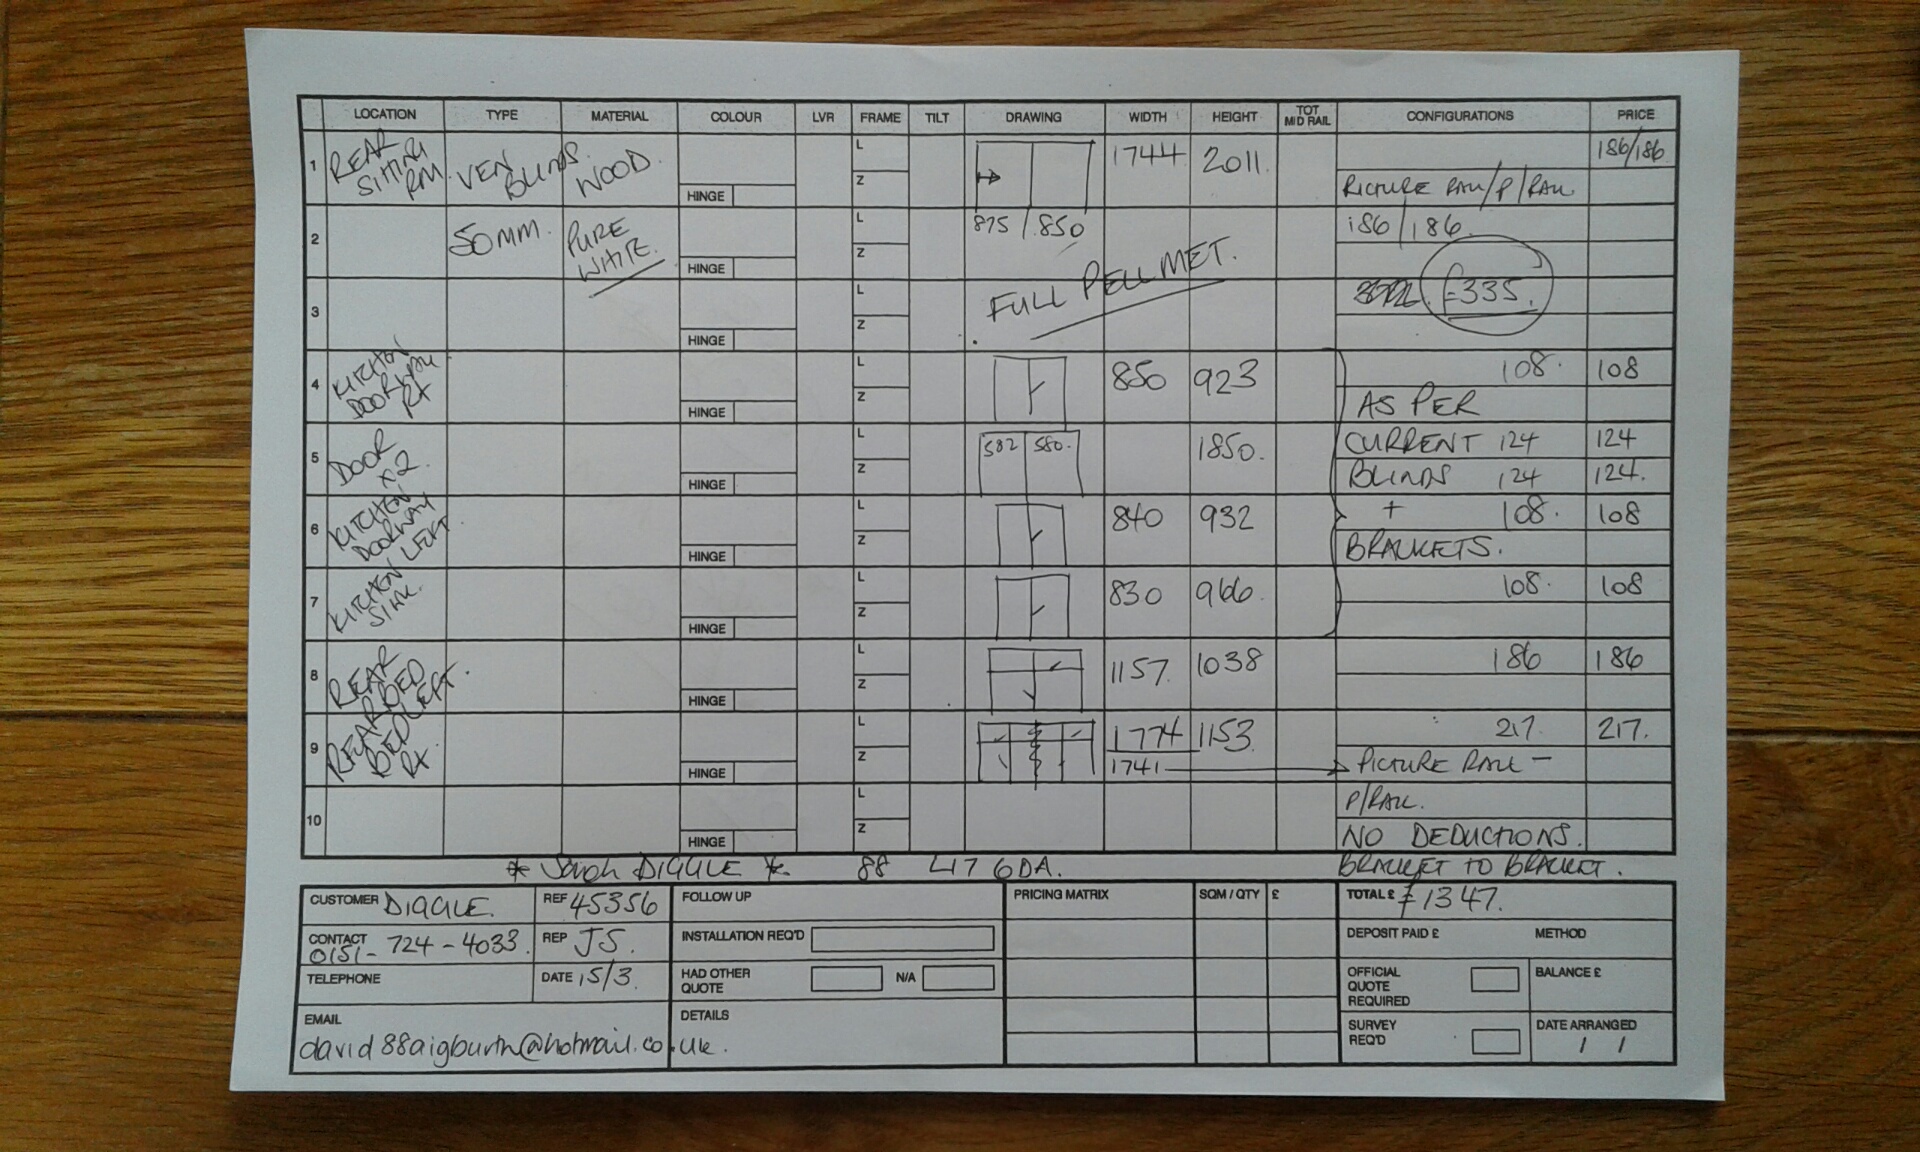 LOCATION TYPE MATERIAL COLOUR LVR FRAME TILT DRAWING WIDTH HEIGHT TOT MID RAIL CONFIGURATIONS PRICE
1 REAR SITTING RM. VEN BLINDS. WOOD. HINGE L Z 1744 2011. PICTURE RAIL/P/RAIL 186/186
2 50MM. PURE WHITE. HINGE L Z 875/850 186/186.
3 HINGE L Z FULL PELLMET. £335.
4 KITCHEN DOORWAY RX HINGE L Z 850 923 108. 108
AS PER
5 DOOR X2. HINGE L Z 582 580. 1850. CURRENT 124 124
BLINDS 124 124.
6 KITCHEN DOORWAY LEFT. HINGE L Z 840 932 + 108. 108
BRACKETS.
7 KITCHEN SINK. HINGE L Z 830 966. 108. 108
8 REAR BED LEFT. HINGE L Z 1157. 1038 186 186
9 REAR BED RX. HINGE L Z 1774 1153. 217. 217.
1741 PICTURE RAIL -
10 HINGE L Z P/RAIL.
NO DEDUCTIONS.
* Sarah DIGGLE *. 88 L17 6DA. BRACKET TO BRACKET.
CUSTOMER DIGGLE. REF 45356 FOLLOW UP PRICING MATRIX SQM / QTY £ TOTAL £ £1347.
CONTACT 0151- 724-4033. REP JS. INSTALLATION REQ'D DEPOSIT PAID £ METHOD
TELEPHONE DATE 15/3. HAD OTHER QUOTE N/A OFFICIAL QUOTE REQUIRED BALANCE £
EMAIL DETAILS SURVEY REQ'D DATE ARRANGED / /
david88aigburth@hotmail.co.uk.